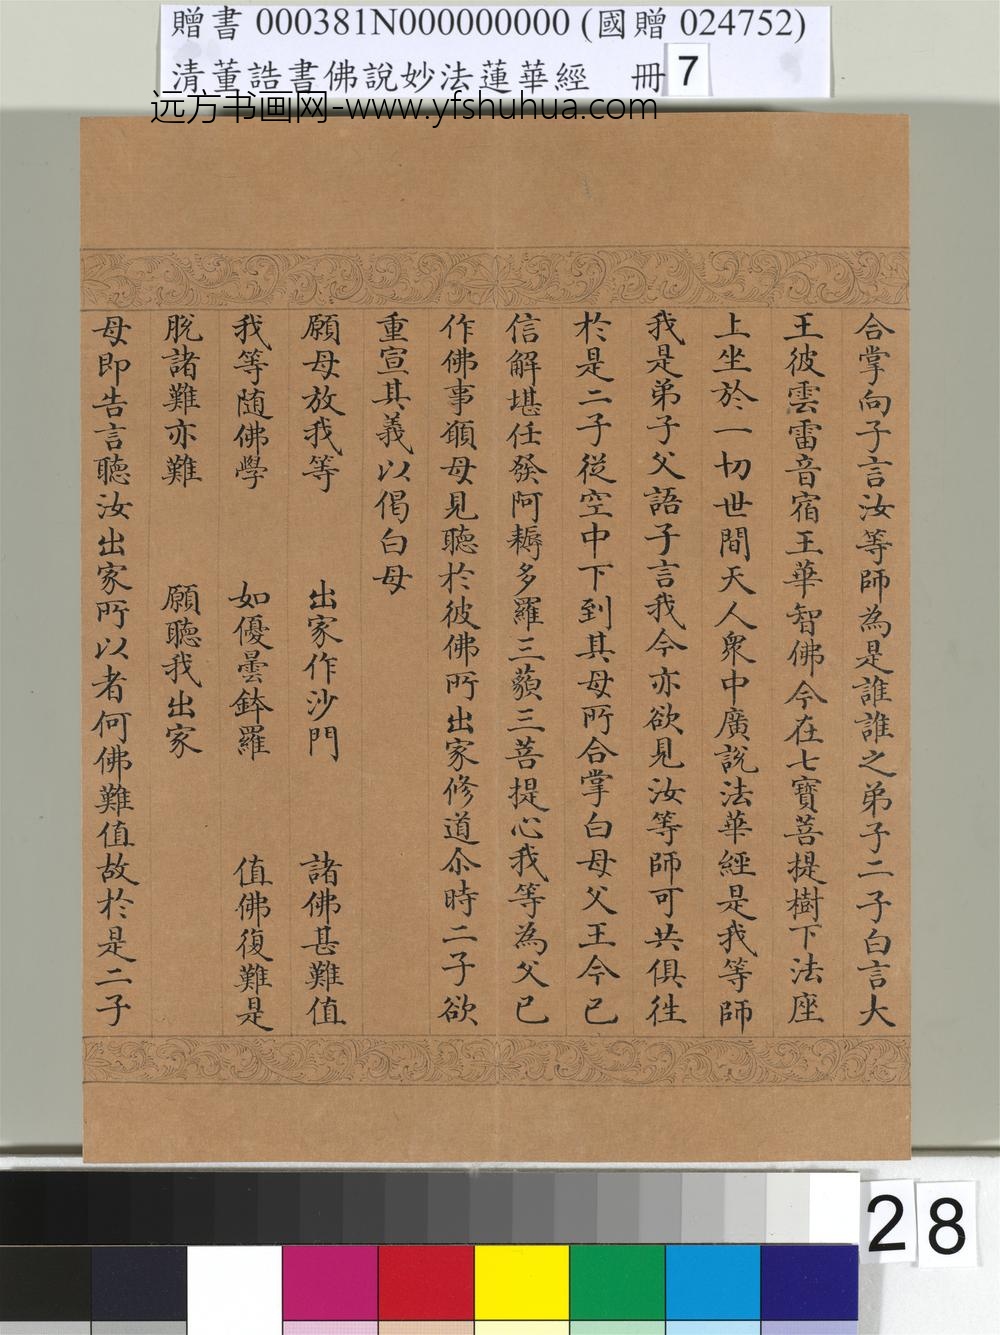 贈書 000381N000000000 (國贈 024752)
清董誥書佛說妙法蓮華經 冊 7
远方书画网-www.yfshuhua.com
合掌向子言汝等師為是誰誰之弟子二子白言大
王彼雲雷音宿王華智佛今在七寶菩提樹下法座
上坐於一切世間天人眾中廣說法華經是我等師
我是弟子父語子言我今亦欲見汝等師可共俱往
於是二子從空中下到其母所合掌白母父王今已
信解堪任發阿耨多羅三藐三菩提心我等為父已
作佛事願母見聽於彼佛所出家修道尒時二子欲
重宣其義以偈白母
願母放我等 出家作沙門 諸佛甚難值
我等随佛學 如優曇鉢羅 值佛復難是
脫諸難亦難 願聽我出家
母即告言聽汝出家所以者何佛難值故於是二子
28